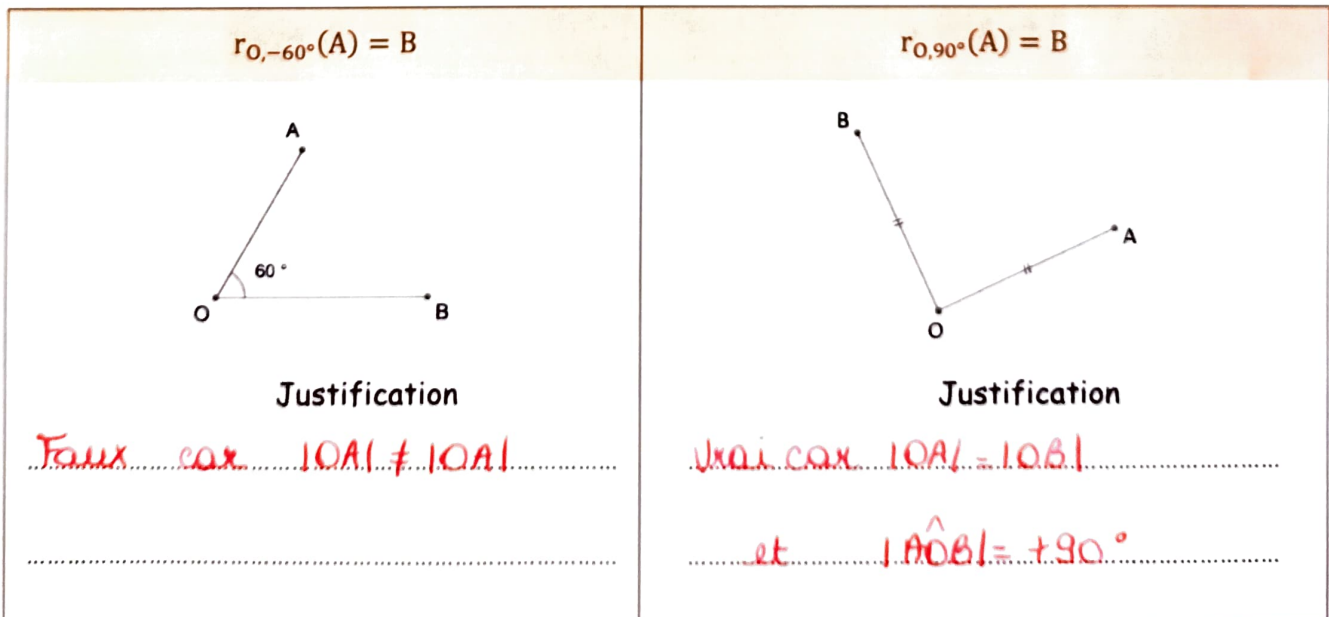 r_{O,−60°}(A) = B
A
60 °
O
B
Justification
Faux car |OA| ≠ |OA|
r_{O,90°}(A) = B
B
A
O
Justification
Vrai car |OA| = |OB|
et |AÔB| = +90°